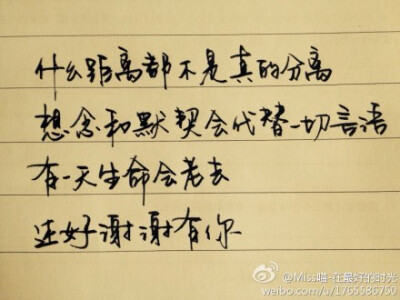 什么距离都不是真的分离
想念和默契会代替一切言语
有一天生命会老去
还好谢谢有你
@Miss喵-在最好的时光
weibo.com/u/1765686750